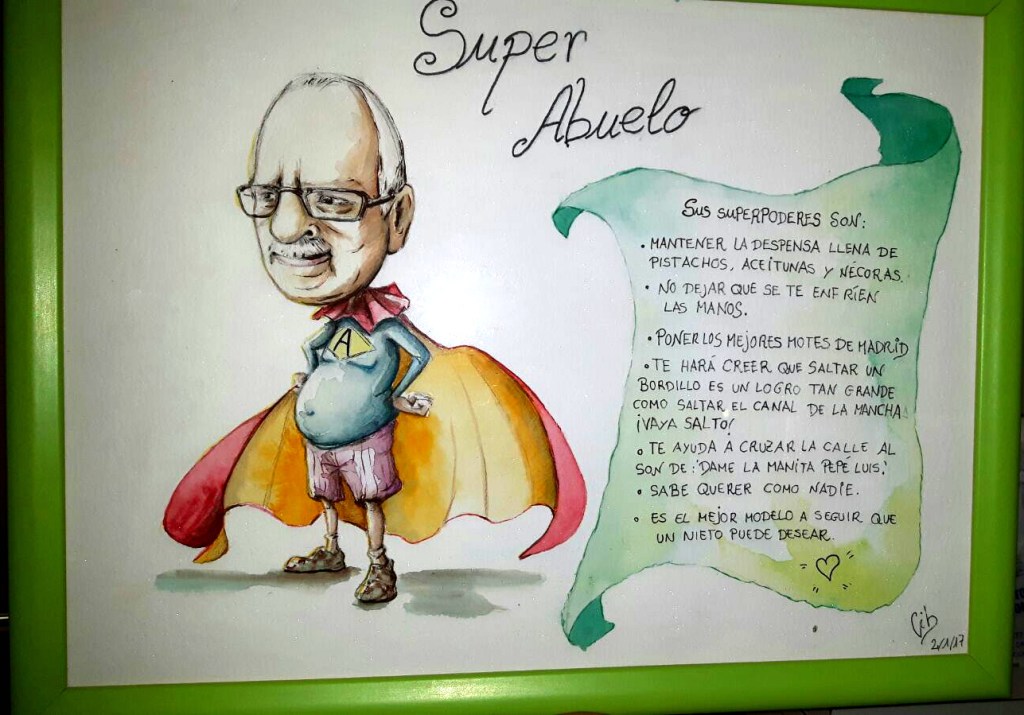 Super
Abuelo
A
SUS SUPERPODERES SON:
• MANTENER LA DESPENSA LLENA DE
PISTACHOS, ACEITUNAS Y NÉCORAS.
• NO DEJAR QUE SE TE ENFRÍEN
LAS MANOS.
• PONER LOS MEJORES MOTES DE MADRID
• TE HARÁ CREER QUE SALTAR UN
BORDILLO ES UN LOGRO TAN GRANDE
COMO SALTAR EL CANAL DE LA MANCHA
¡VAYA SALTO!
• TE AYUDA A CRUZAR LA CALLE AL
SON DE: 'DAME LA MANITA PEPÉ LUIS.'
• SABE QUERER COMO NADIE.
• ES EL MEJOR MODELO A SEGUIR QUE
UN NIETO PUEDE DESEAR.